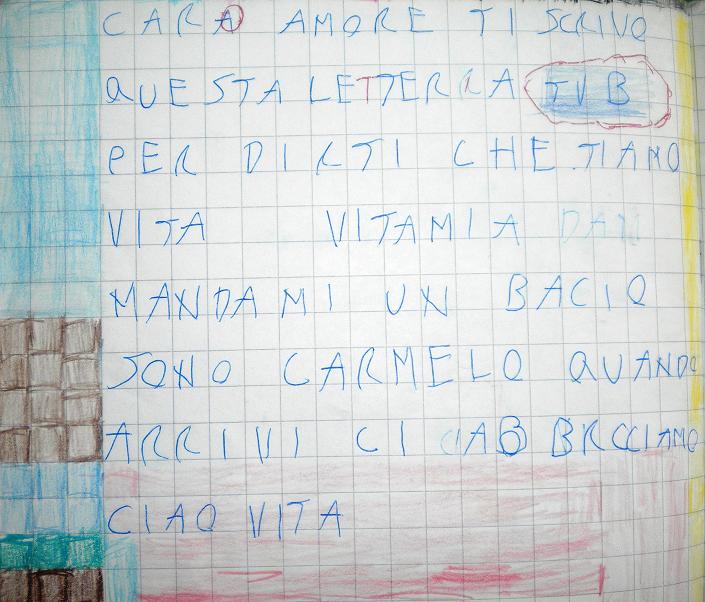 CARA AMORE TI SCRIVO
QUESTA LETTERRA TVB
PER DIRTI CHE TIAMO
VITA VITAMIA
MANDAMI UN BACIO
SONO CARMELO QUANDO
ARRIVI CI BRCCIAMO
CIAO VITA